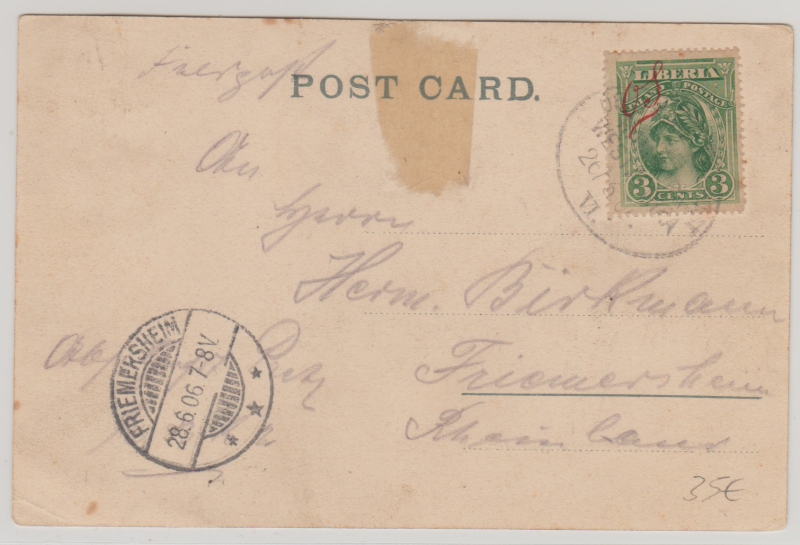 Feldpost
POST CARD.
LIBERIA
INLAND POSTAGE
OS
3 CENTS 3
An
Herrn
Herm. Birkmann
Friemersheim
Rheinland
FRIEMERSHEIM
28.6.06.7-8V.
35€